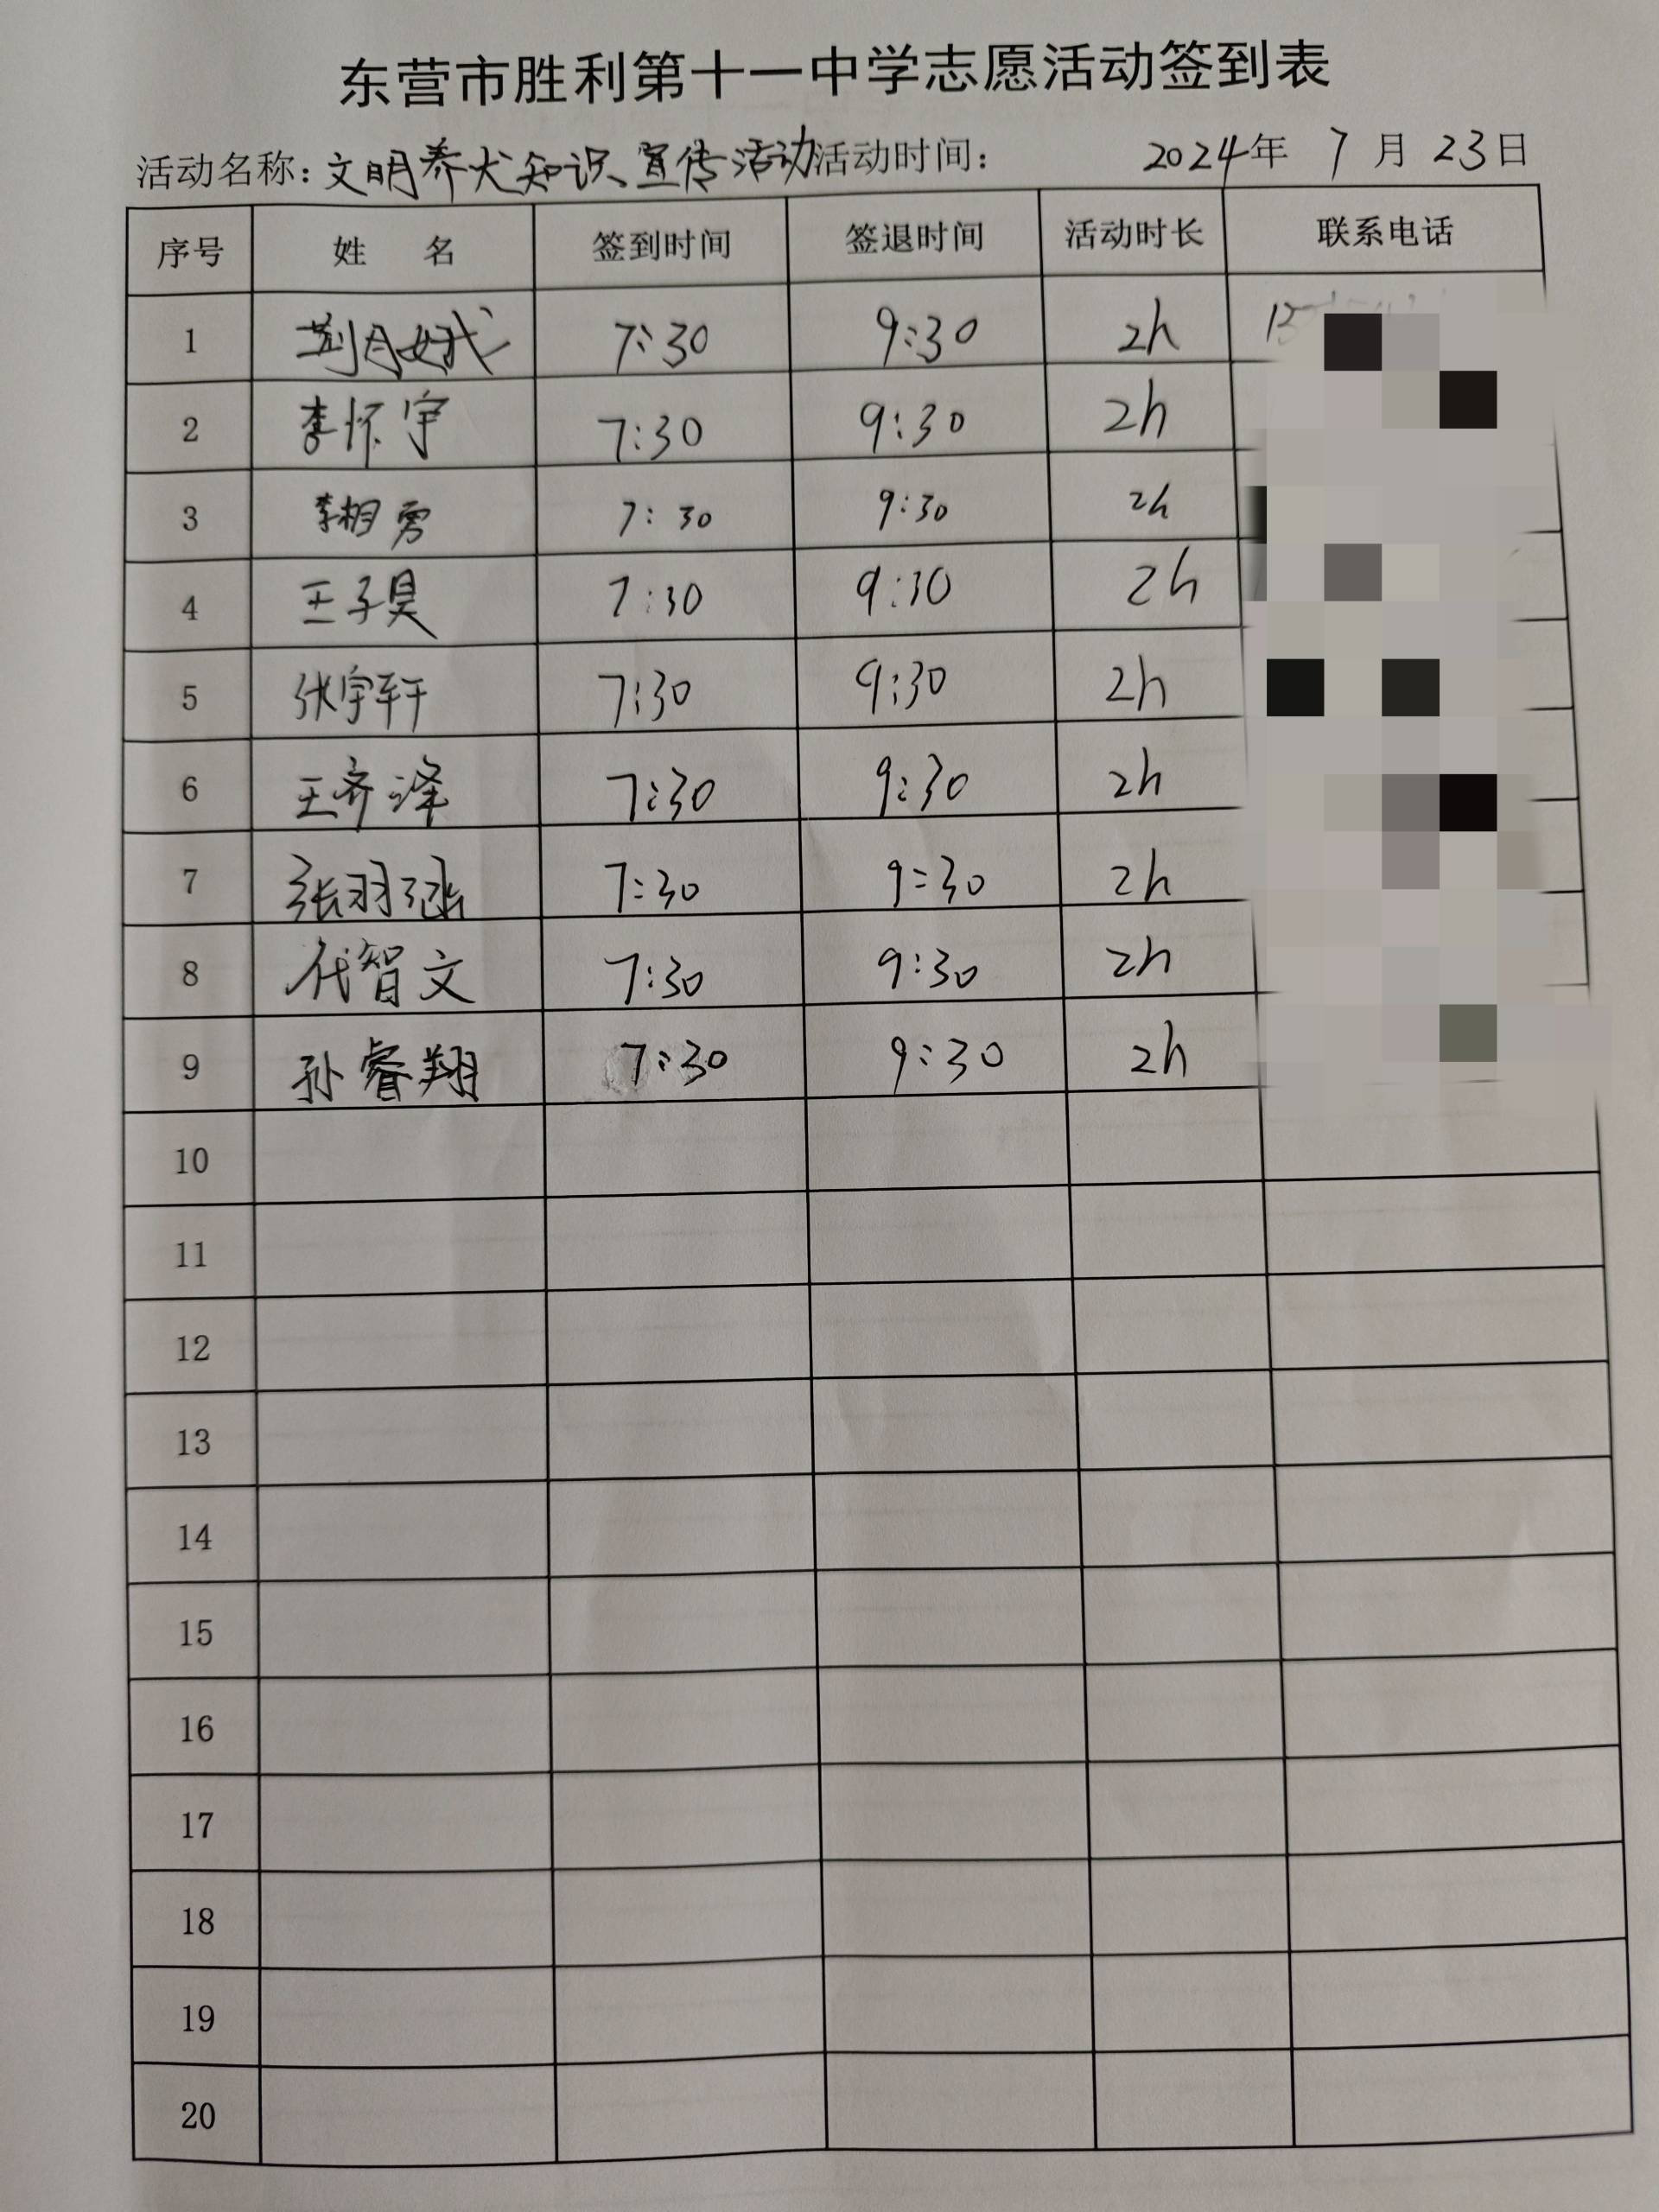 东营市胜利第十一中学志愿活动签到表
活动名称:文明养犬知识宣传活动活动时间: 2024年 7月 23日
序号 姓 名 签到时间 签退时间 活动时长 联系电话
1 荆月娥 7:30 9:30 2h
2 李怀宇 7:30 9:30 2h
3 李相勇 7:30 9:30 2h
4 王子昊 7:30 9:30 2h
5 张宇轩 7:30 9:30 2h
6 王齐泽 7:30 9:30 2h
7 张羽涵 7:30 9:30 2h
8 代智文 7:30 9:30 2h
9 孙睿翔 7:30 9:30 2h
10
11
12
13
14
15
16
17
18
19
20